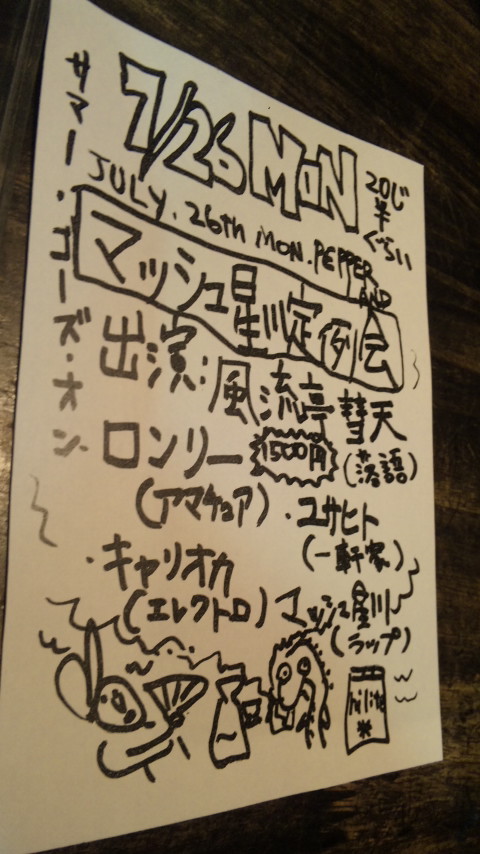 サマー・ゴーズ・オン
7/26 MON
20じ
半
ぐらい
JULY. 26th MON. PEPPER
AND
マッシュ星川定例会
出演:風流亭彗天
(落語)
ロンリー
1500円
(アマチュア)
・ユサヒト
(一軒家)
・キャリオカ
(エレクトロ)
マッシュ星川
(ラップ)
hilite